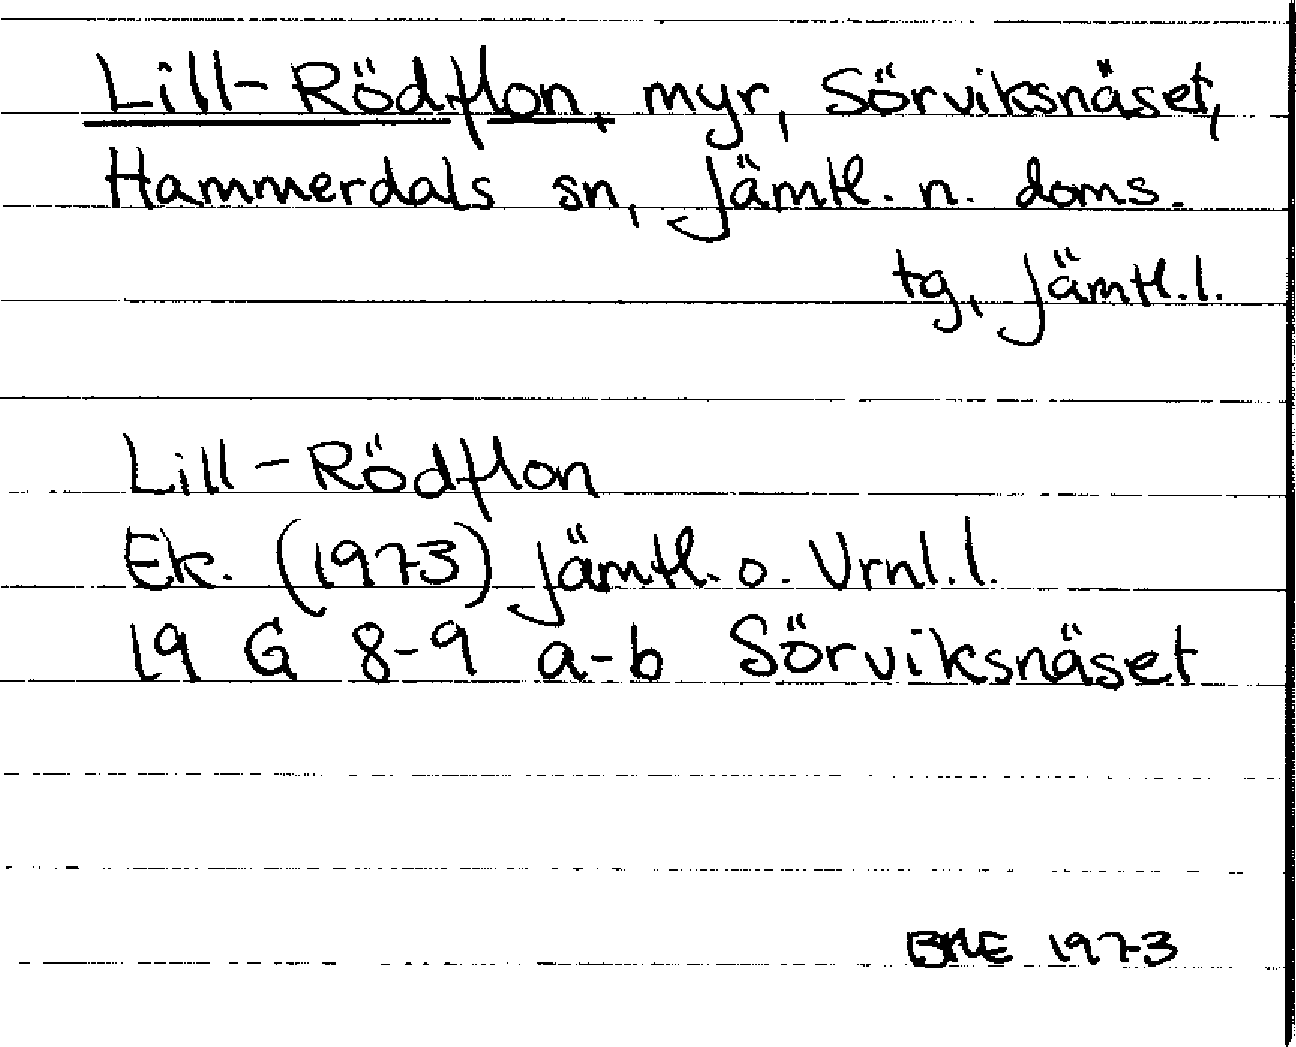 Lill-Rödflon, myr, Sörviksnäset,
Hammerdals sn, Jämtl. n. doms.
tg, Jämtl.l.
Lill-Rödflon
Ek. (1973) Jämtl. o. Vrnl.l.
19 G 8-9 a-b Sörviksnäset
1973